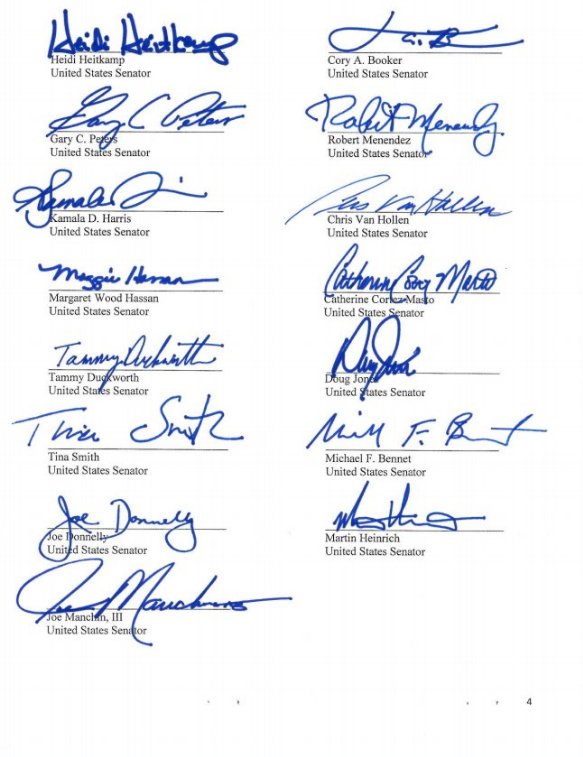 Heidi Heitkamp
Heidi Heitkamp
United States Senator
Cory A. Booker
United States Senator
Gary C Peters
Gary C. Peters
United States Senator
Robert Menendez
Robert Menendez
United States Senator
Kamala
Kamala D. Harris
United States Senator
Chris Van Hollen
Chris Van Hollen
United States Senator
Maggie Hassan
Margaret Wood Hassan
United States Senator
Catherine Cortez Masto
Catherine Cortez Masto
United States Senator
Tammy Duckworth
Tammy Duckworth
United States Senator
Doug Jones
Doug Jones
United States Senator
Tina Smith
Tina Smith
United States Senator
Michael F. Bennet
United States Senator
Joe Donnelly
Joe Donnelly
United States Senator
Martin Heinrich
United States Senator
Joe Manchin
Joe Manchin, III
United States Senator
4